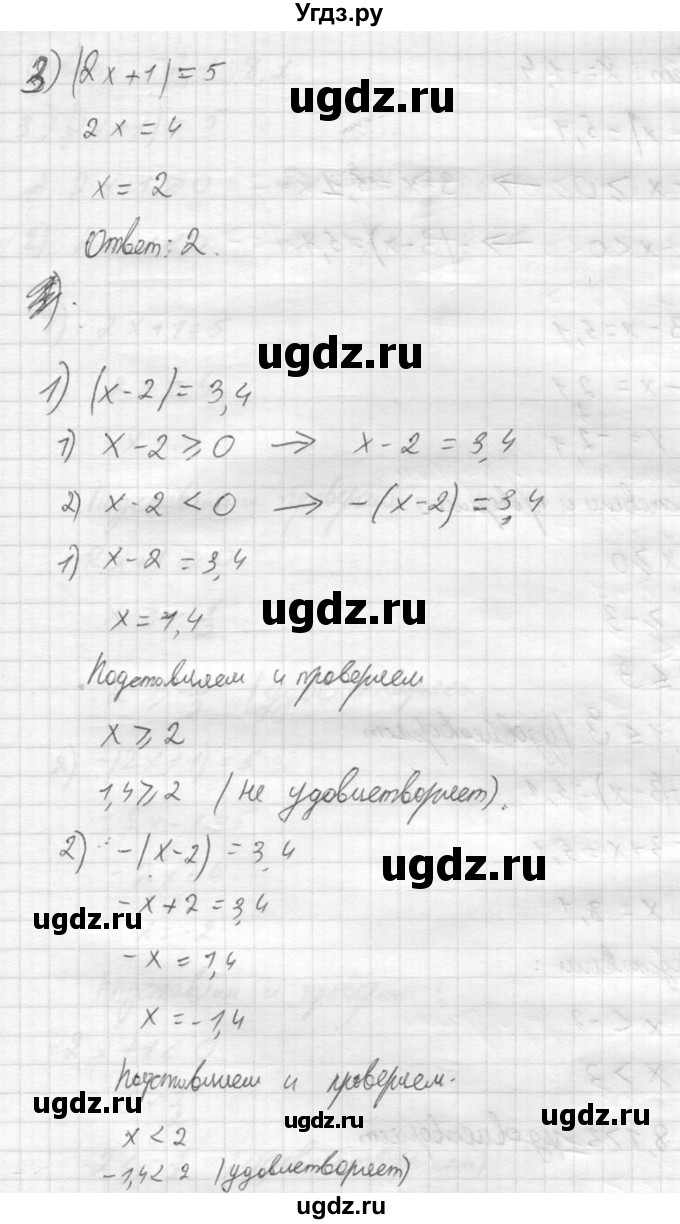 Угдз.ру
3) |2x+1|=5
ugdz.ru
2x=4
x=2
Ответ: 2.
ugdz.ru
1) |x-2|=3,4
1) x-2⩾0 → x-2=3,4
2) x-2<0 → -(x-2)=3,4
1) x-2=3,4
ugdz.ru
x=1,4
Подставляем и проверяем
x⩾2
1,4⩾2 (не удовлетворяет).
2) -(x-2)=3,4
ugdz.ru
-x+2=3,4
ugdz.ru
-x=1,4
x=-1,4
Подставляем и проверяем.
ugdz.ru
ugdz.ru
ugdz.ru
x<2
-1,4<2 (удовлетворяет)
ugdz.ru